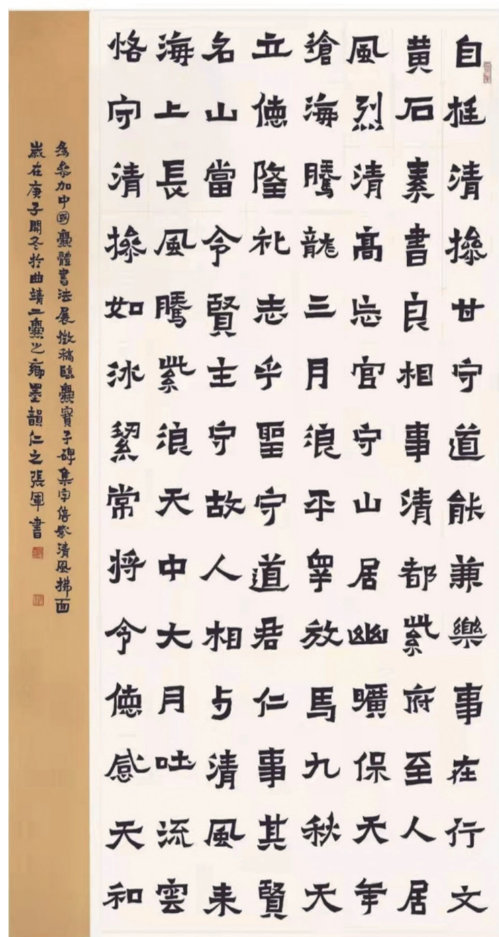 自挺清操甘守道能兼樂事在行文
黄石素書良相事清都紫府至人居
風烈清高忘官守山居幽曠保天年
滄海騰龍三月浪平皋放馬九秋天
立德隆礼志乎聖守道君仁事其賢
名山當令賢主守故人相与清風来
海上長風騰紫浪天中大月吐流雲
恪守清操如冰絜常將令德感天和
為參加中國爨體書法展徵稿臨爨寶子碑集字清風拂面
歲在庚子冬於曲靖二爨之鄉墨韻仁之張軍書